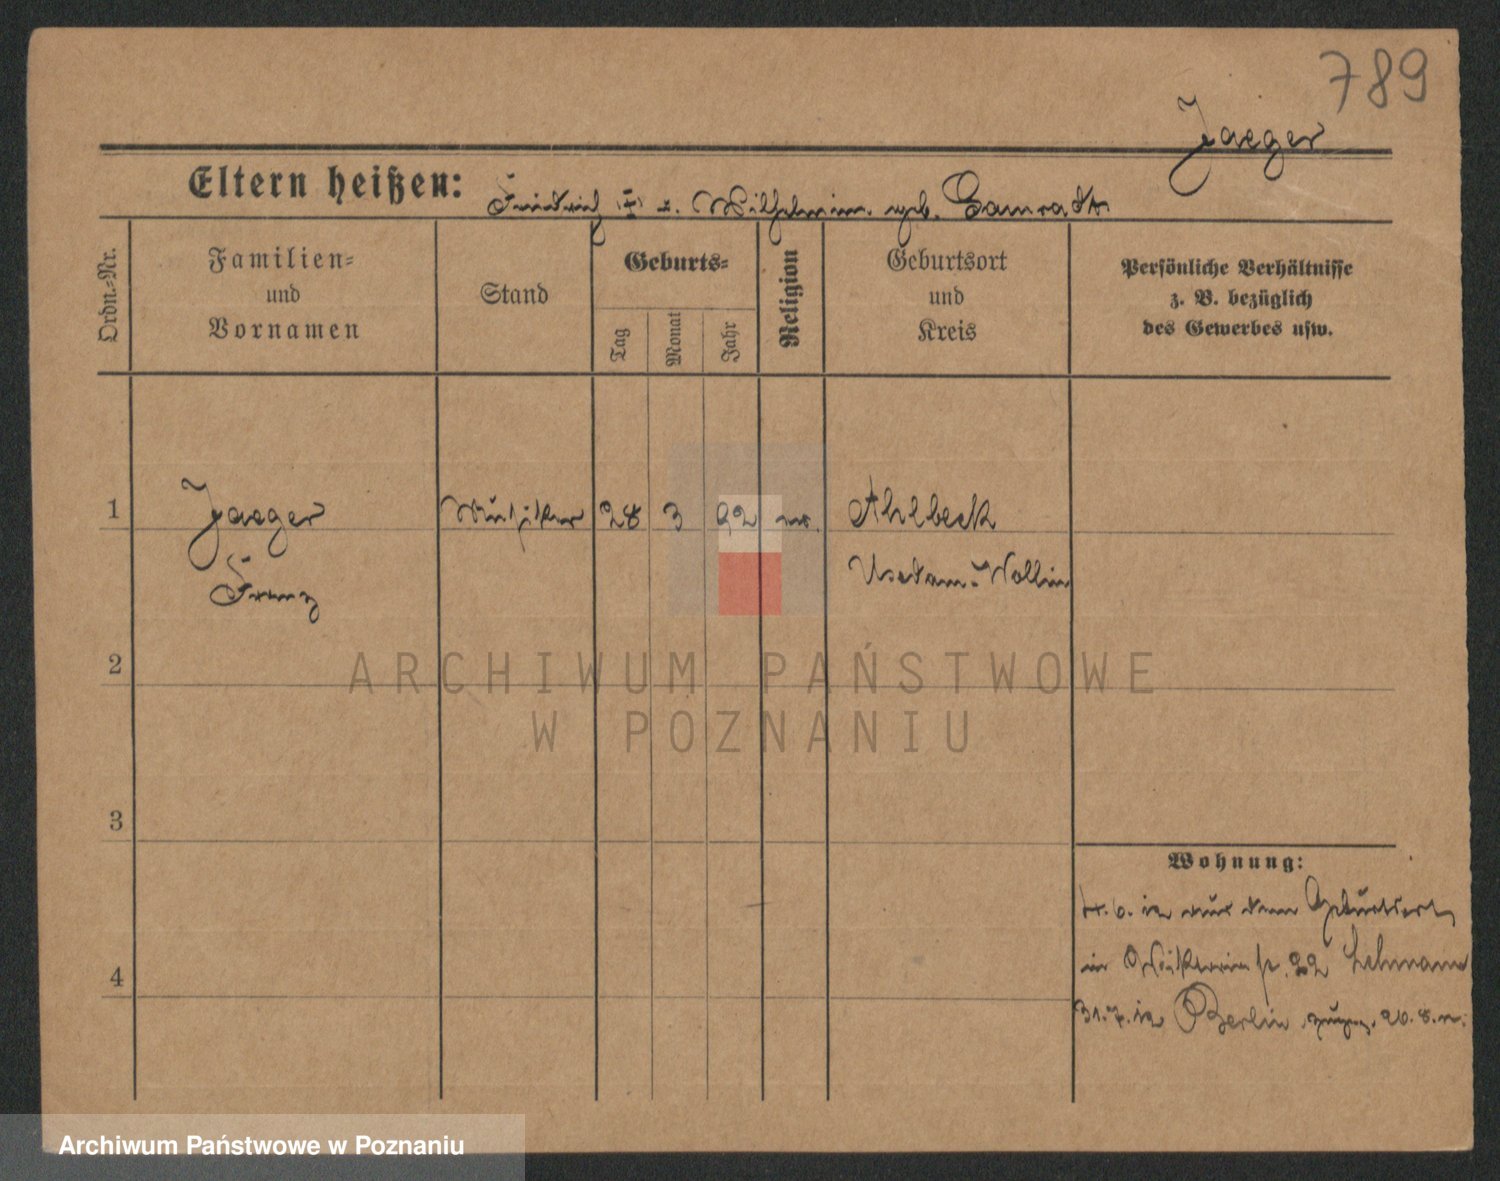 789
Jaeger
Eltern heißen: Friedrich III u. Wilhelmine geb. Camradt
Ordn.-Nr.
Familien-
und
Vornamen
Stand
Geburts-
Tag
Monat
Jahr
Religion
Geburtsort
und
Kreis
Persönliche Verhältnisse
z. B. bezüglich
des Gewerbes usw.
1 Jaeger Musiker 28 3 92 ev. Ahlbeck
Franz Usedom-Wollin
2
ARCHIWUM PAŃSTWOWE
W POZNANIU
3
4
Wohnung:
Geburtsort
in 22 Lehmann
31.7. Berlin 20.8.
Archiwum Państwowe w Poznaniu